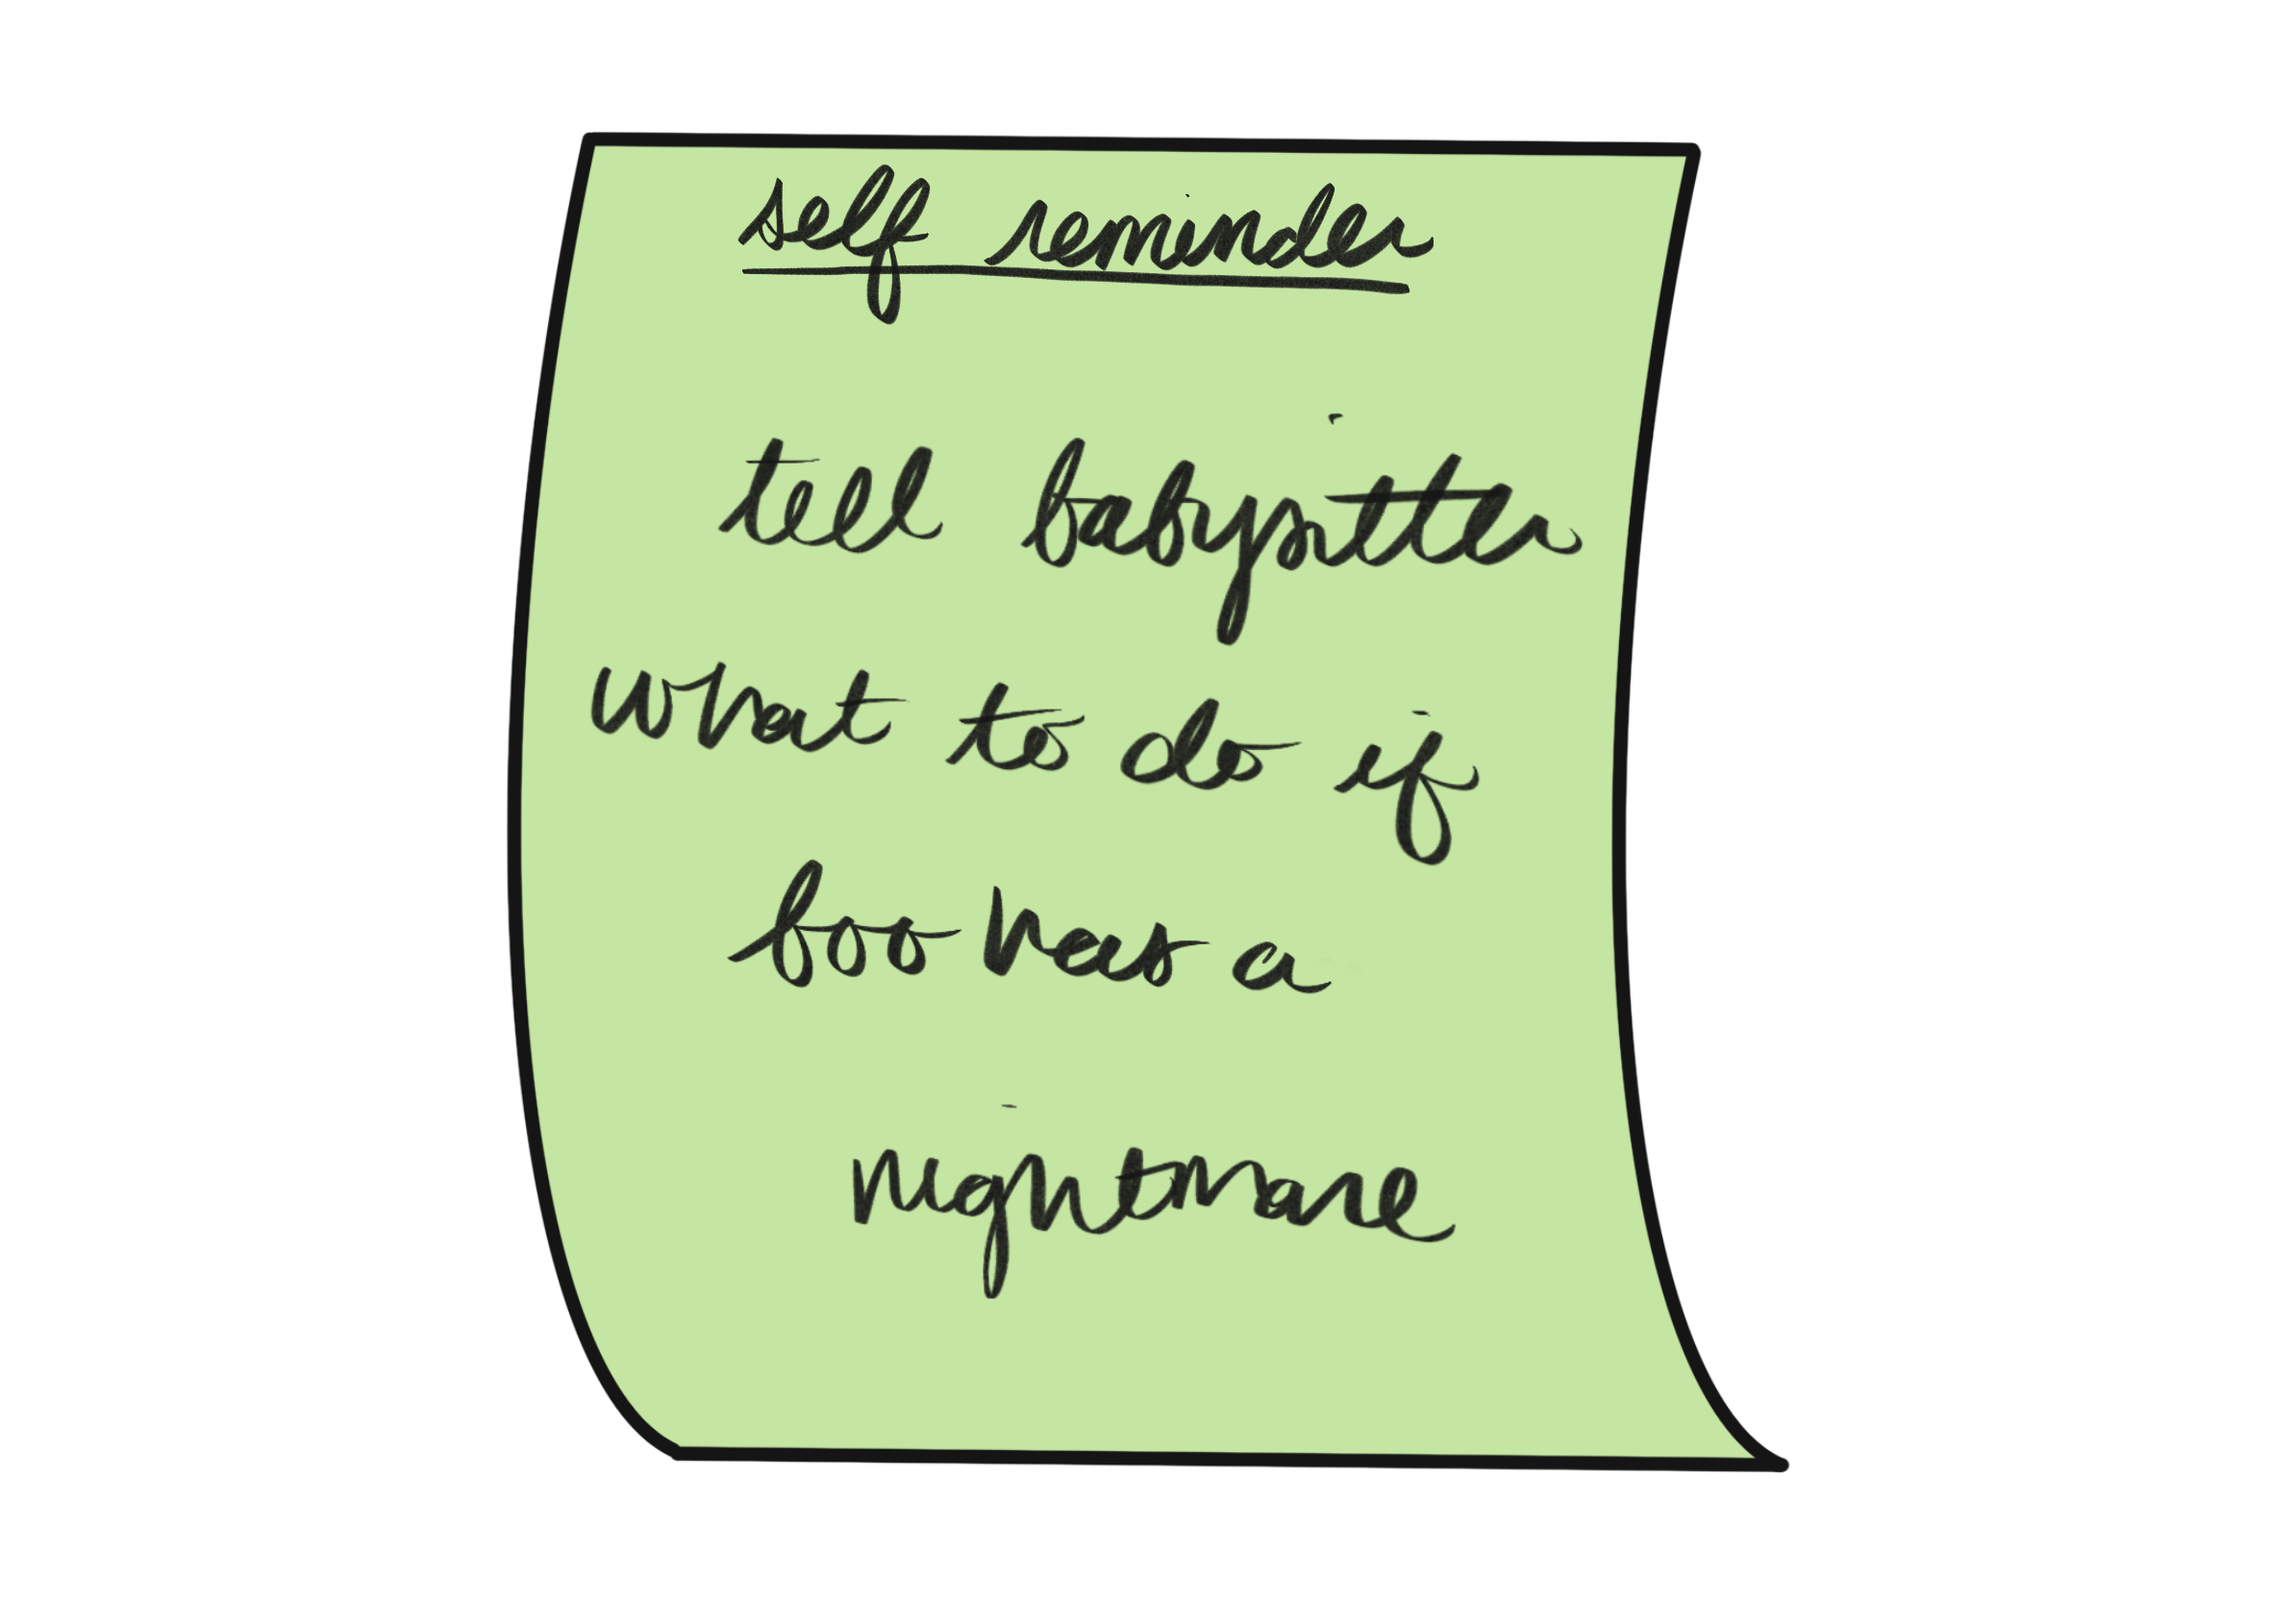 self reminder
tell babysitter
what to do if
boo has a
nightmare